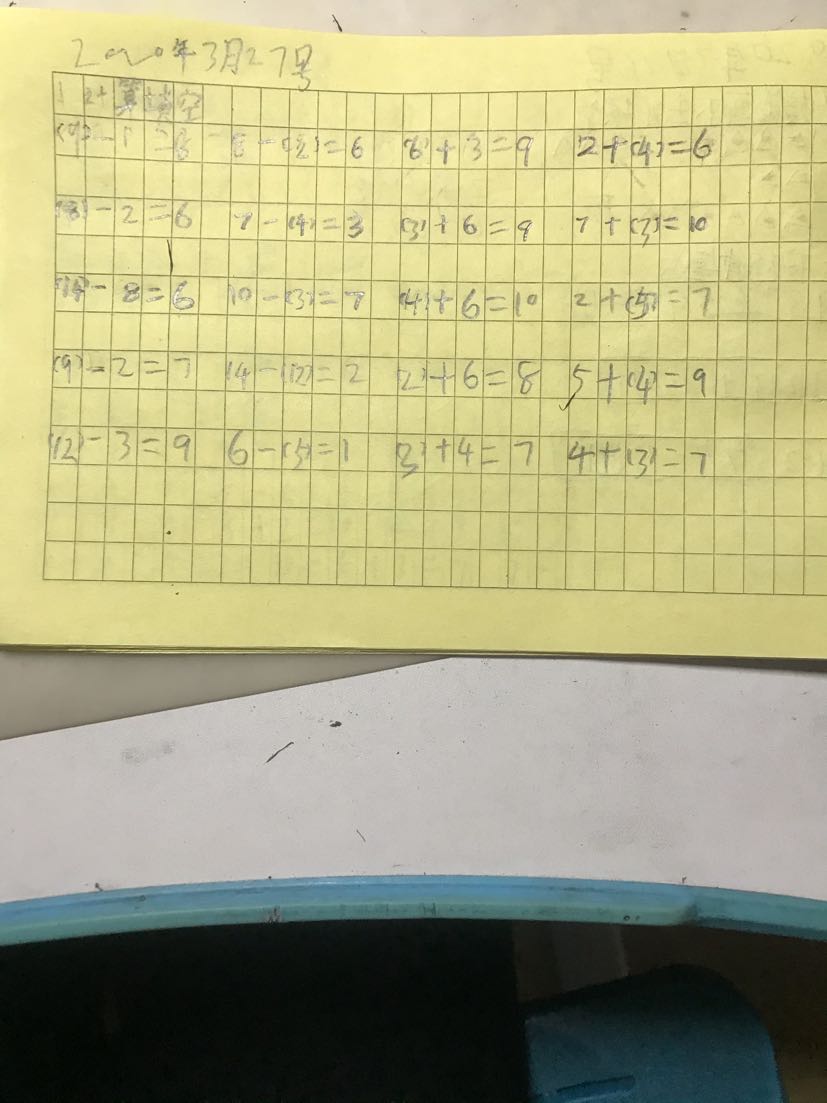 2020年3月27号
1 计算填空
(7)-1=6 8-(2)=6 (6)+3=9 2+(4)=6
(8)-2=6 7-(4)=3 (3)+6=9 7+(3)=10
(14)-8=6 10-(3)=7 (4)+6=10 2+(5)=7
(9)-2=7 14-(12)=2 (2)+6=8 5+(4)=9
(12)-3=9 6-(5)=1 (3)+4=7 4+(3)=7